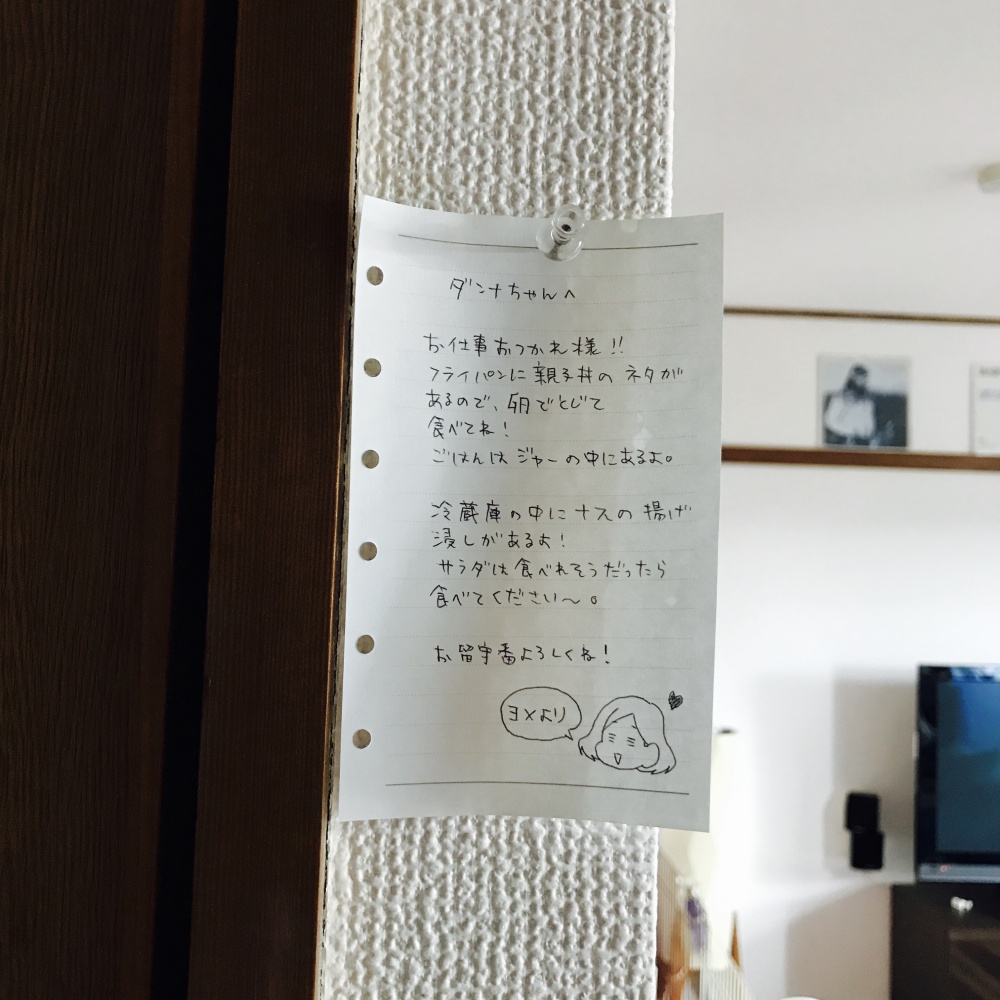 ダンナちゃんへ
お仕事おつかれ様!!
フライパンに親子丼のネタが
あるので、卵でとじて
食べてね!
ごはんはジャーの中にあるよ。
冷蔵庫の中にナスの揚げ
浸しがあるよ!
サラダは食べれそうだったら
食べてください〜。
お留守番よろしくね!
ヨメより